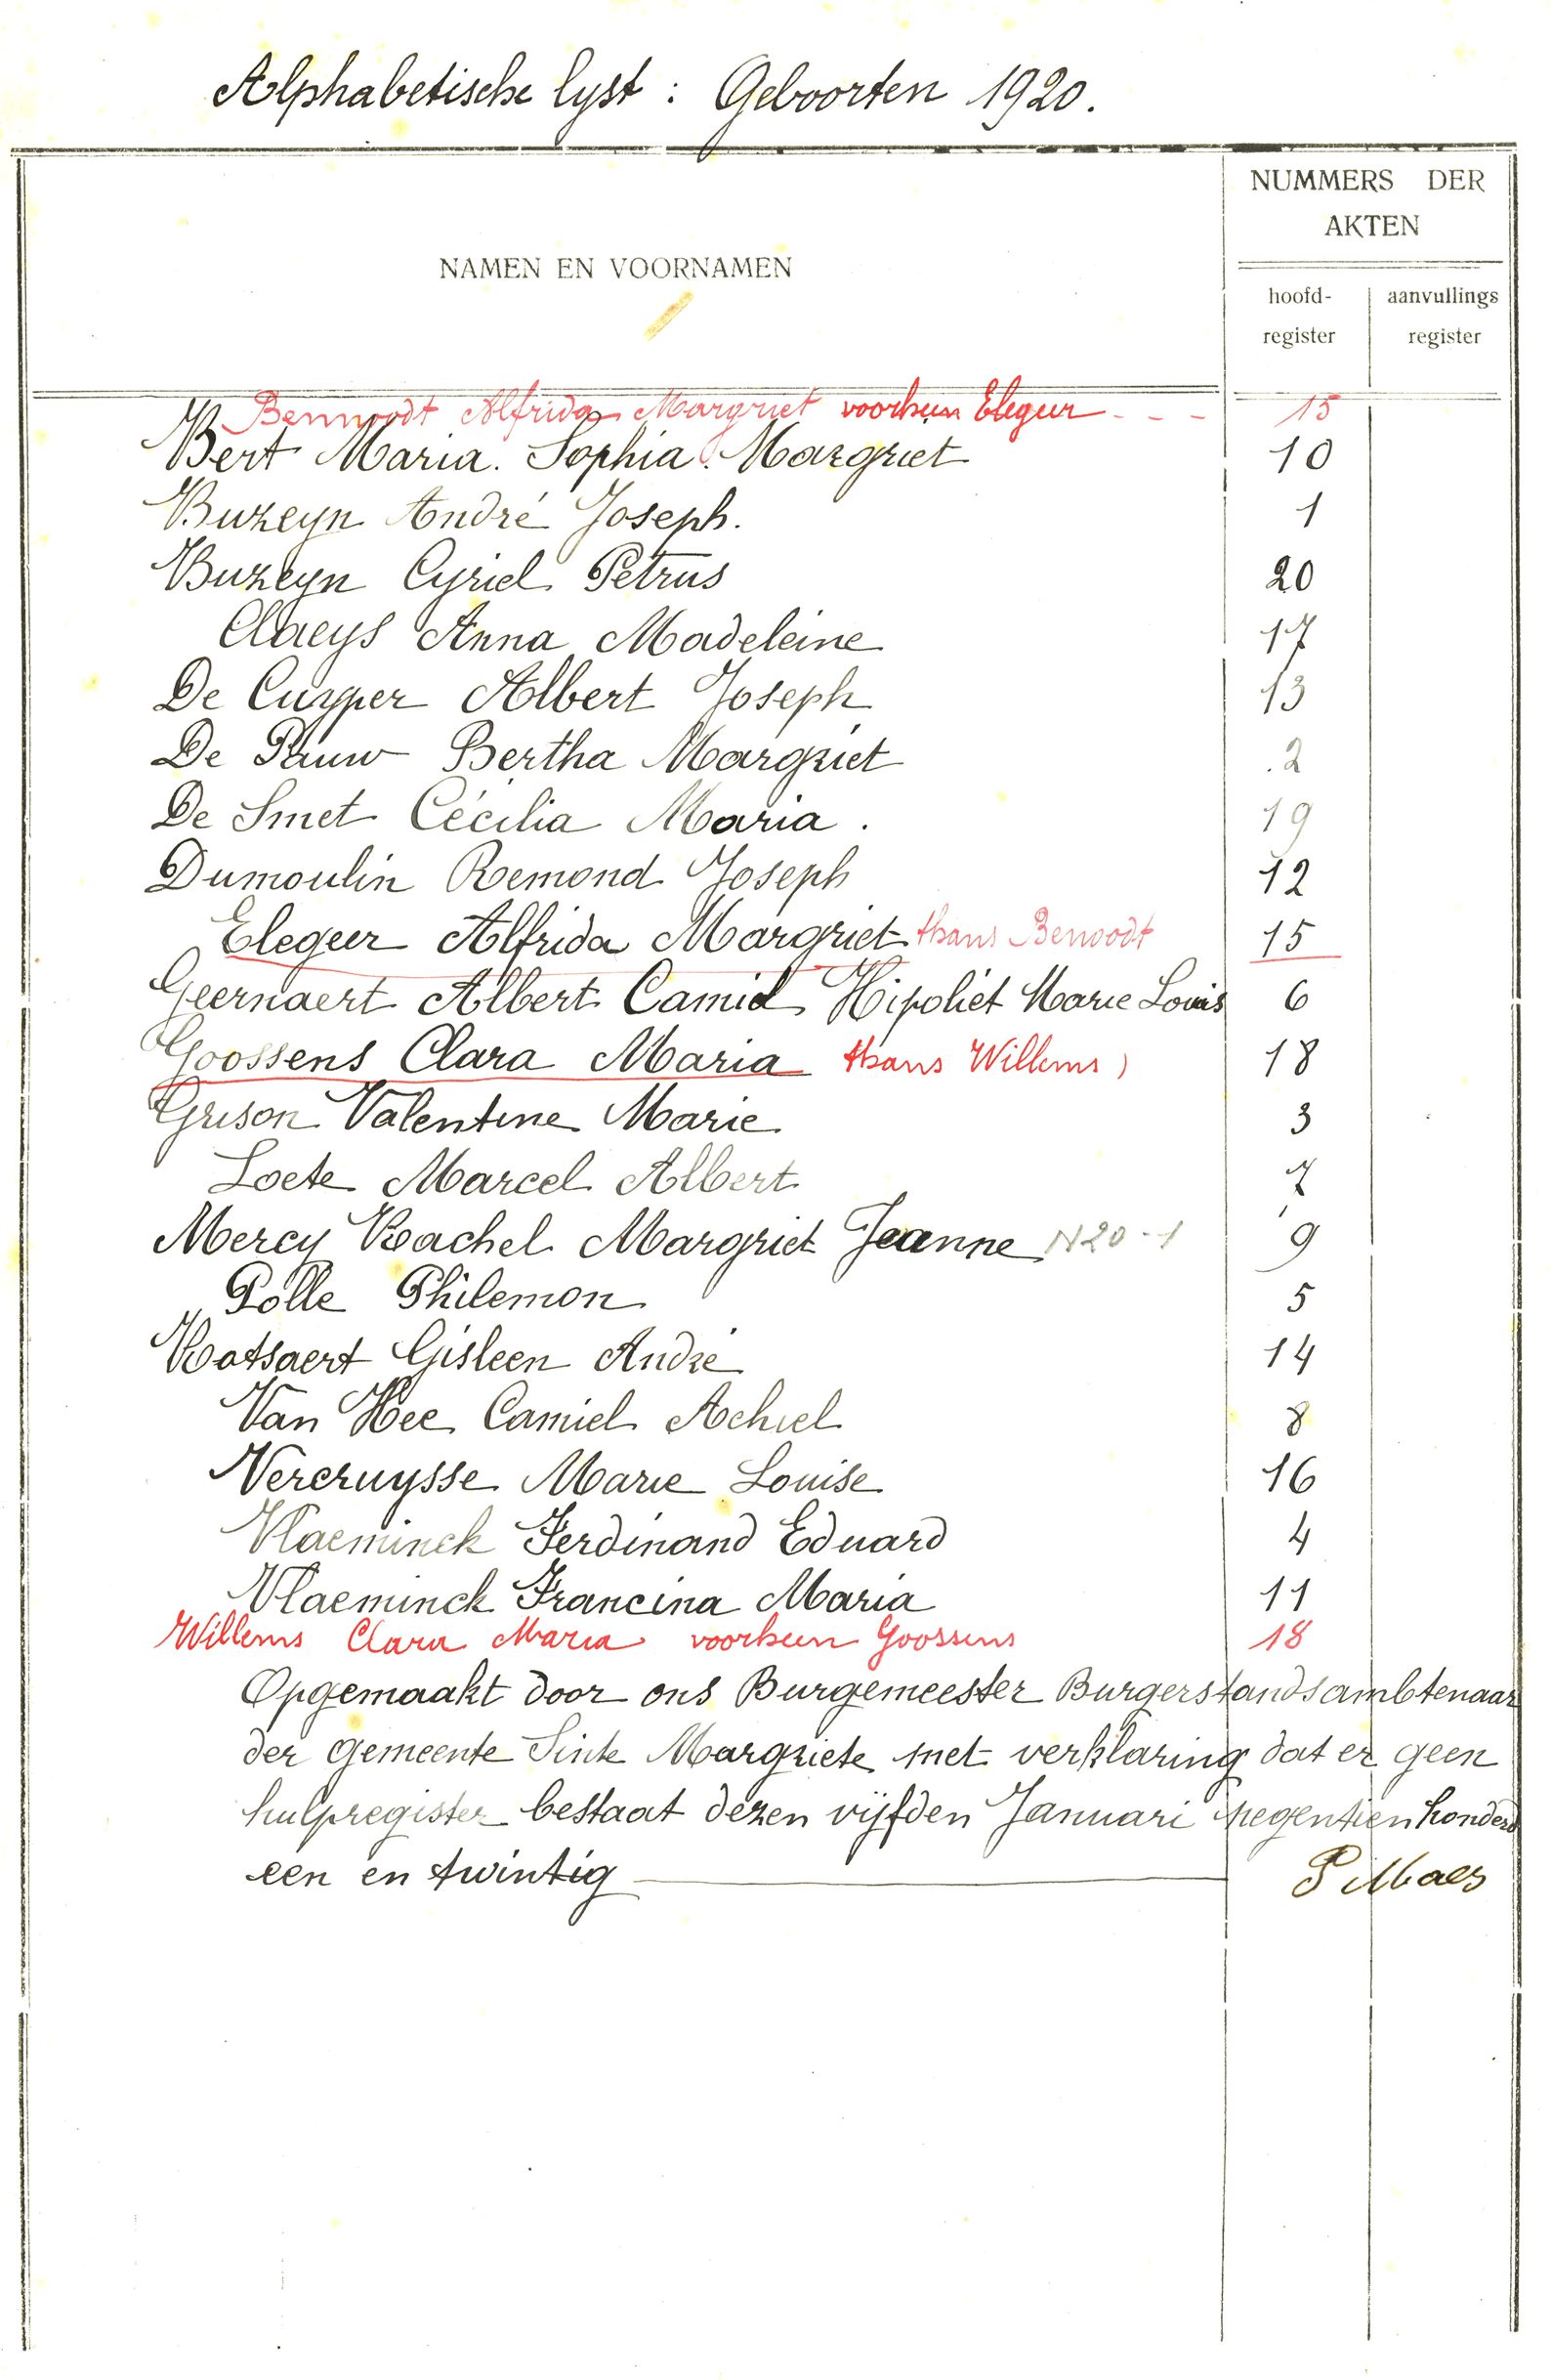 Alphabetische lyst : Geboorten 1920.
NUMMERS DER
AKTEN
NAMEN EN VOORNAMEN
hoofd- aanvullings
register register
Benwodt Alfrida Margriet voorheen Elegeer - - - 15
Bert Maria. Sophia. Margriet 10
Buzeyn André Joseph. 1
Buzeyn Cyriel Petrus 20
Claeys Anna Madeleine 17
De Cuyper Albert Joseph 13
De Pauw Bertha Margriet 2
De Smet Cécilia Maria. 19
Dumoulin Remond Joseph 12
Elegeer Alfrida Margriet thans Benwodt 15
Geernaert Albert Camiel Hipoliet Marie Louis 6
Goossens Clara Maria thans Willems) 18
Grison Valentine Marie 3
Loete Marcel Albert 7
Mercy Rachel Margriet Jeanne N20-1 9
Polle Philemon 5
Rotsaert Gisleen André 14
Van Hee Camiel Achiel 8
Vercruysse Marie Louise 16
Vlaeminck Ferdinand Eduard 4
Vlaeminck Francina Maria 11
Willems Clara Maria voorheen Goossens 18
Opgemaakt door ons Burgemeester Burgerstandsambtenaar
der gemeente Sinte Margriete met verklaring dat er geen
hulpregister bestaat dezen vijfden Januari negentien honderd
een en twintig P Maes